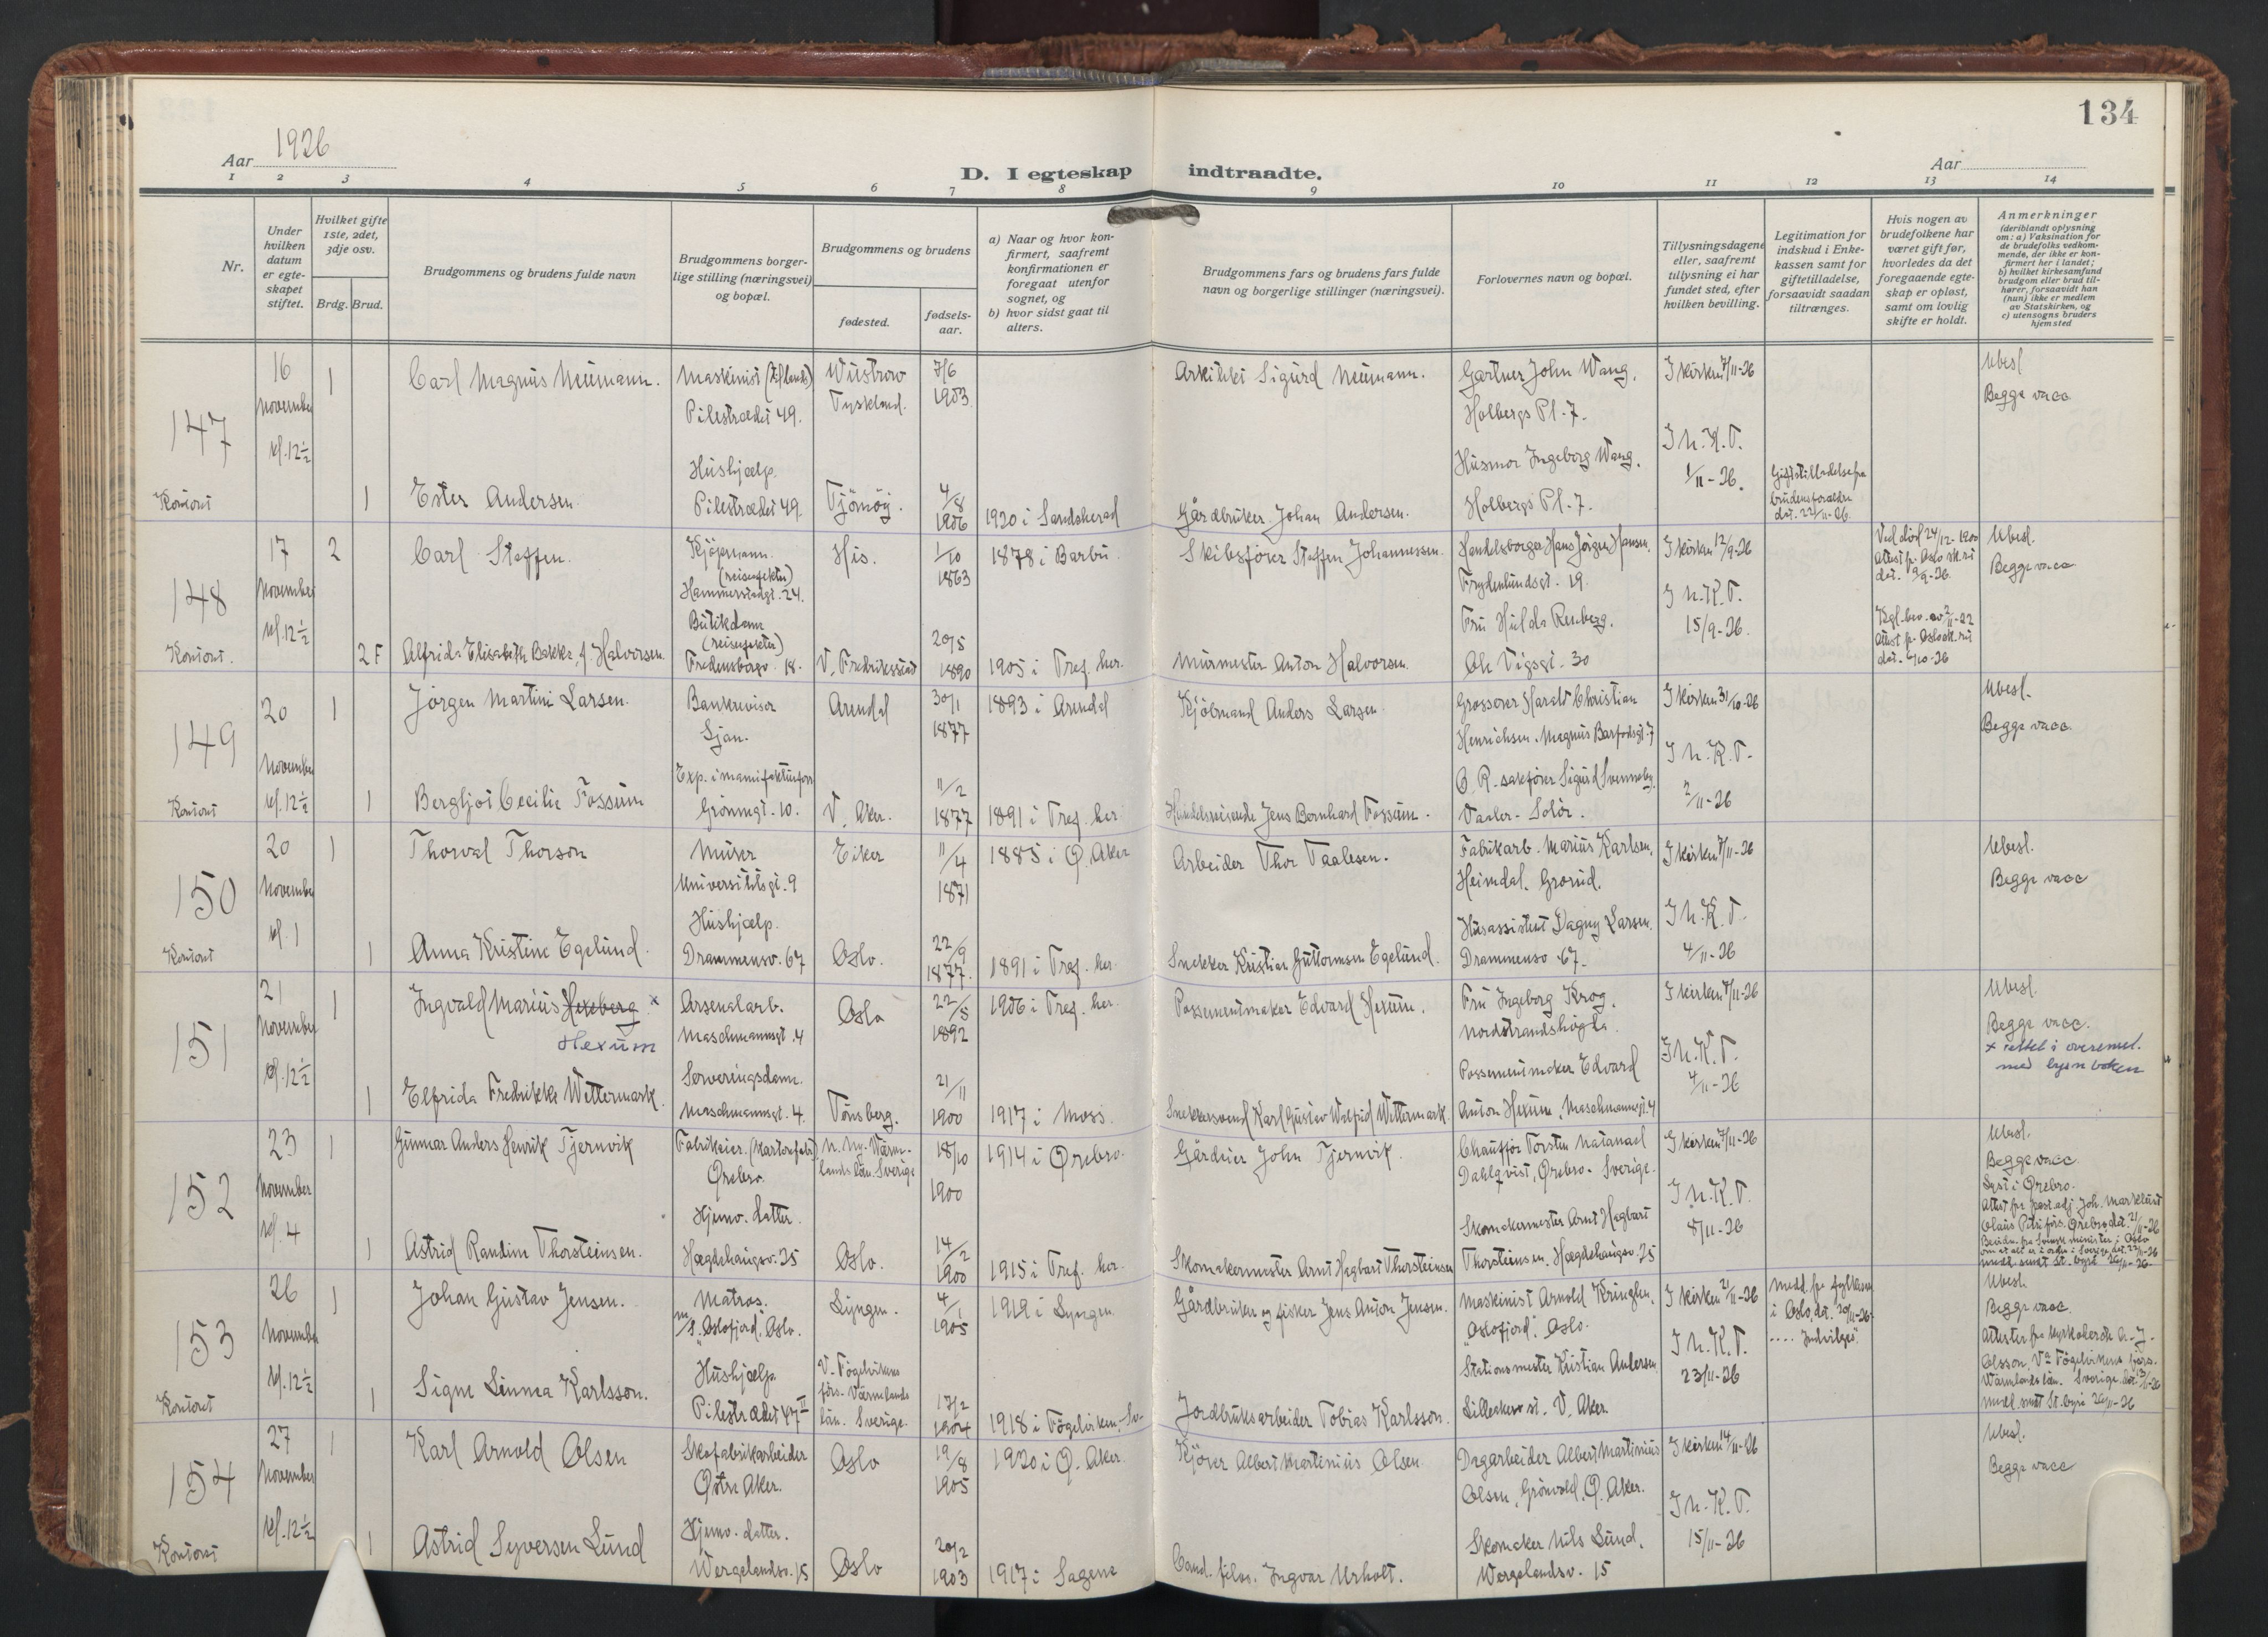 134
Aar 1926
D. I egteskap indtraadte.
Aar
1 2 3 4 5 6 7 8 9 10 11 12 13 14
Nr.
Under hvilken datum er egteskapet stiftet.
Hvilket gifte 1ste, 2det, 3dje osv.
Brdg. Brud.
Brudgommens og brudens fulde navn
Brudgommens borgerlige stilling (næringsvei) og bopæl.
Brudgommens og brudens
fødested.
fødselsaar.
a) Naar og hvor konfirmert, saafremt konfirmationen er foregaat utenfor sognet, og
b) hvor sidst gaat til alters.
Brudgommens fars og brudens fars fulde navn og borgerlige stillinger (næringsvei).
Forlovernes navn og bopæl.
Tillysningsdagene eller, saafremt tillysning ei har fundet sted, efter hvilken bevilling.
Legitimation for indskud i Enkekassen samt for giftetilladelse, forsaavidt saadan tiltrænges.
Hvis nogen av brudefolkene har været gift før, hvorledes da det foregaaende egteskap er opløst, samt om lovlig skifte er holdt.
Anmerkninger (deriblandt oplysning om: a) Vaksination for de brudefolks vedkommende, der ikke er konfirmert her i landet; b) hvilket kirkesamfund brudgom eller brud tilhører, forsaavidt han (hun) ikke er medlem av Statskirken, og c) utensogns bruders hjemsted
147
Kontoret
16 November kl. 12½
1
Carl Magnus Neumann.
Maskinist
Pilestrædet 49.
Wüstrow Tyskland.
7/6 1903
Arkitekt Sigurd Neumann.
Gartner John Wang.
Holbergs Pl. 7.
I kirken 7/11-26
Ubesl
Begge vacc
1
Ester Andersen.
Hushjælp.
Pilestrædet 49.
Tjömöy.
4/8 1906
1920 i Sandeherad
Gårdbruker Johan Andersen.
Husmor Ingeborg Wang.
Holbergs Pl. 7.
I N.K.T.
1/11-26.
Giftetilladelse fra brudens forældre dat. 22/11-26.
148
Kontoret.
17 November kl. 12½
2
Carl Steffen.
Kjøpmann.
(reiseefekter)
Hammerstadgt. 24.
His.
1/10 1863
1878 i Barbu
Skibsfører Steffen Johannessen.
Handelsborger Hans Jørgen Hansen.
Frydenlundsgt. 19.
I kirken 12/9-26
Ved död 24/12-1900
Attest p. Oslo sk.rt
dat. 9/9-26.
Ubesl.
Begge vacc
2 F
Alfrida Elisabeth Bakke, f. Halvorsen.
Butikdame
(reiseefekter)
Fredensborgv. 18.
V. Fredrikstad
20/5 1890
1905 i Tref. her.
Murmester Anton Halvorsen.
Fru Hulda Renberg.
Ole Vigsgt. 30
I N.K.T.
15/9-26.
149
Kontoret
20 November kl. 12½
1
Jörgen Martini Larsen.
Bankrevisor
Ljan.
Arendal
30/1 1877
1893 i Arendal
Kjöbmand Anders Larsen.
Grosserer Harald Christian
Henrichsen. Magnus Barfodsgt. 7
I kirken 31/10-26
Ubesl.
Begge vacc.
1
Bergljot Cecilie Fossum
Grönnegt. 10.
V. Aker.
11/2 1877
1891 i Tref. her
Handelsreisende Jens Bernhard Fossum.
O. R. sakfører Sigurd Svenneby.
Vaaler - Solör.
I N.K.T.
2/11-26
150
Kontoret
20 November kl. 1
1
Thorval Thorson
Murer
Universitetsgt. 9
Eiker
11/4 1871
1885 i Ø. Aker
Arbeider Thor Taalesen.
Fabrikarb. Marius Karlsen.
Heimdal. Grorud.
I kirken 7/11-26
Ubesl.
Begge vacc
1
Anna Kristine Egelund.
Hushjælp.
Drammensv. 67
Oslo.
22/9 1877.
1891 i Tref. her.
Snekker Kristian Guttormsen Egelund.
Husassistent Dagny Larsen.
Drammensv 67.
I N.K.T.
4/11-26
151
21 November kl. 12½
1
Ingvald Marius Hexeberg x
Hexum
Arsenalarb.
Maschmannsgt. 4
Oslo
22/5 1892
1906 i Tref. her.
Possementmaker Edvard Hexum.
Fru Ingeborg Krog.
Nordstrandshögda.
I kirken 7/11-26
Ubesl.
Begge vacc.
x rettet i overensst.
med lysn boken
1
Elfrida Fredrikke Wettermark.
Serveringsdame.
Maschmannsgt. 4.
Tönsberg.
21/11 1900
1917 i Moss.
Snekkersvend Karl Gustav Walfrid Wettermark.
Possementmaker Edvard
Anton Hexum, Maschmannsgt. 4
I N.K.T.
4/11-26
152
23 November kl. 4
1
Gunnar Anders Henrik Tjernvik
Fabrikeier (Kartonfabr.)
Ørebro.
N. Ny. Värmlands län. Sverige
18/10 1900
1914 i Ørebro.
Gårdeier John Tjernvik.
Chauffør Torsten Natanael
Dahlqvist, Ørebro. Sverige.
I kirken 7/11-26
Ubesl.
Begge vacc.
Lyst i Ørebro.
1
Astrid Randine Thorsteinsen.
Hjemv. datter.
Hægdehaugsv. 25
Oslo.
14/2 1900
1915 i Tref. her.
Skomakermester Arnt Hagbart Thorsteinsen
Skomakermester Arnt Hagbart
Thorsteinsen. Hægdehaugsv. 25
I N.K.T.
8/11-26
153
Kontoret
26 November kl. 12½
1
Johan Gustav Jensen.
Matros.
m/s. "Oslofjord". Oslo.
Lyngen.
4/1 1905
1919 i Lyngen
Gårdbruker og fisker Jens Anton Jensen.
Maskinist Arnold Kringlen.
"Oslofjord". Oslo.
I kirken 21/11-26
Medd. fra fylkesm.
i Oslo, dat. 20/11-26.
.... Indvilges".
Ubesl.
Begge vacc.
1
Signe Linnea Karlsson.
Hushjælp
Pilestrædet 47 II
V. Fögelvikens förs. Värmlands län. Sverige.
17/2 1904
1918 i Fögelviken. Sv.
Jordbruksarbeider Tobias Karlsson.
Stationsmester Kristian Andersen
Lilleaker st. V. Aker.
I N.K.T.
23/11-26
154
Kontoret
27 November kl. 12½
1
Karl Arnold Olsen
Skofabrikarbeider
Østre Aker.
Oslo
19/8 1905
1920 i Ø. Aker.
Kjører Albert Martinius Olsen
Dagarbeider Albert Martinius
Olsen, Grönvold, Ø. Aker.
I kirken 14/11-26
Ubesl.
Begge vacc
1
Astrid Syversen Lund
Hjemv. datter.
Wergelandsv. 15
Oslo
20/2 1903
1917 i Sagene
Cand. filos. Ingvar Urholt.
Skomaker Nils Lund.
Wergelandsv. 15
I N.K.T.
15/11-26